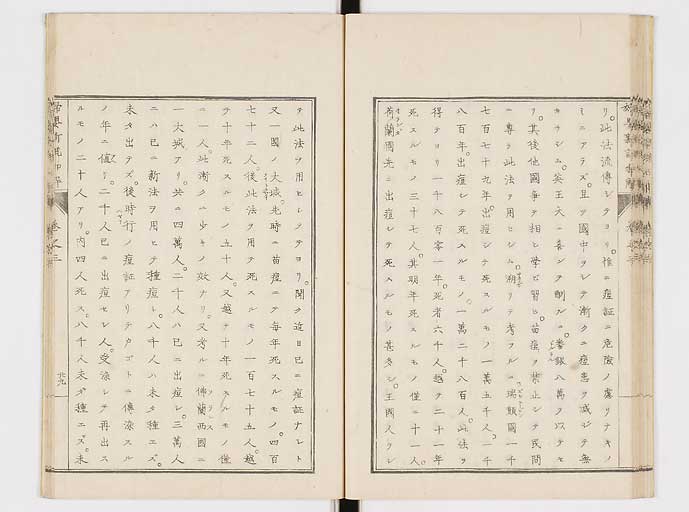 リ。此法流傳シテヨリ。惟ニ痘証ニ危險ノ慮リナキノ
ミニアラズ。且ツ國中ヲシテ漸クニ痘患ヲ滅ジテ無
カラシム。英王大ニ喜ンデ酬フルニ番銀八萬ヲ以テセ
リ。其後他國爭ヲ相ヒ學ビ習ヒ苗痘ヲ禁止シテ民間
ニ專ラ此法ヲ用ヒシム。溯リテ考フルニ瑞顛國一千
七百七十九年。出痘シテ死スルモノ一萬五千人。一千
八百年。出痘シテ死スルモノ。一萬二千八百人。此法ヲ
得テヨリ一千八百零一年。死者六千人。越テ二十一年
死スルモノ三十七人。其明年死スルモノ僅ニ十一人。
荷蘭國先ニ出痘シテ死スルモノ甚多シ。王國人クレ
ヲ此法ヲ用ヒシメテヨリ。聞ク近日已ニ痘証ナシト
又一國ノ大城。先時ニ苗痘ニテ毎年死スルモノ。四百
七十二人。後此法ヲ用テ死スルモノ一百七十五人。越
テ十年死スルモノ五十人。又越テ十年死スルモノ僅
ニ一人。此漸クニ少キノ效ナリ。又考ルニ佛蘭西國ニ
一大城アリ。共ニ四萬人。二千人ハ已ニ出痘シ。三萬人
ニハ已ニ新法ヲ用ヒテ種痘シ。八千人ハ未タ種エズ。
未タ出テズ。後時行ノ痘証アリテカゴトニ傳染スル
ノ年ニ値ヒ。二千人已ニ出痘セシ人。受染シテ再出ス
ルモノ二十人アリ。内四人死ス。八千人未ダ種エズ。未
卷之三
廿九